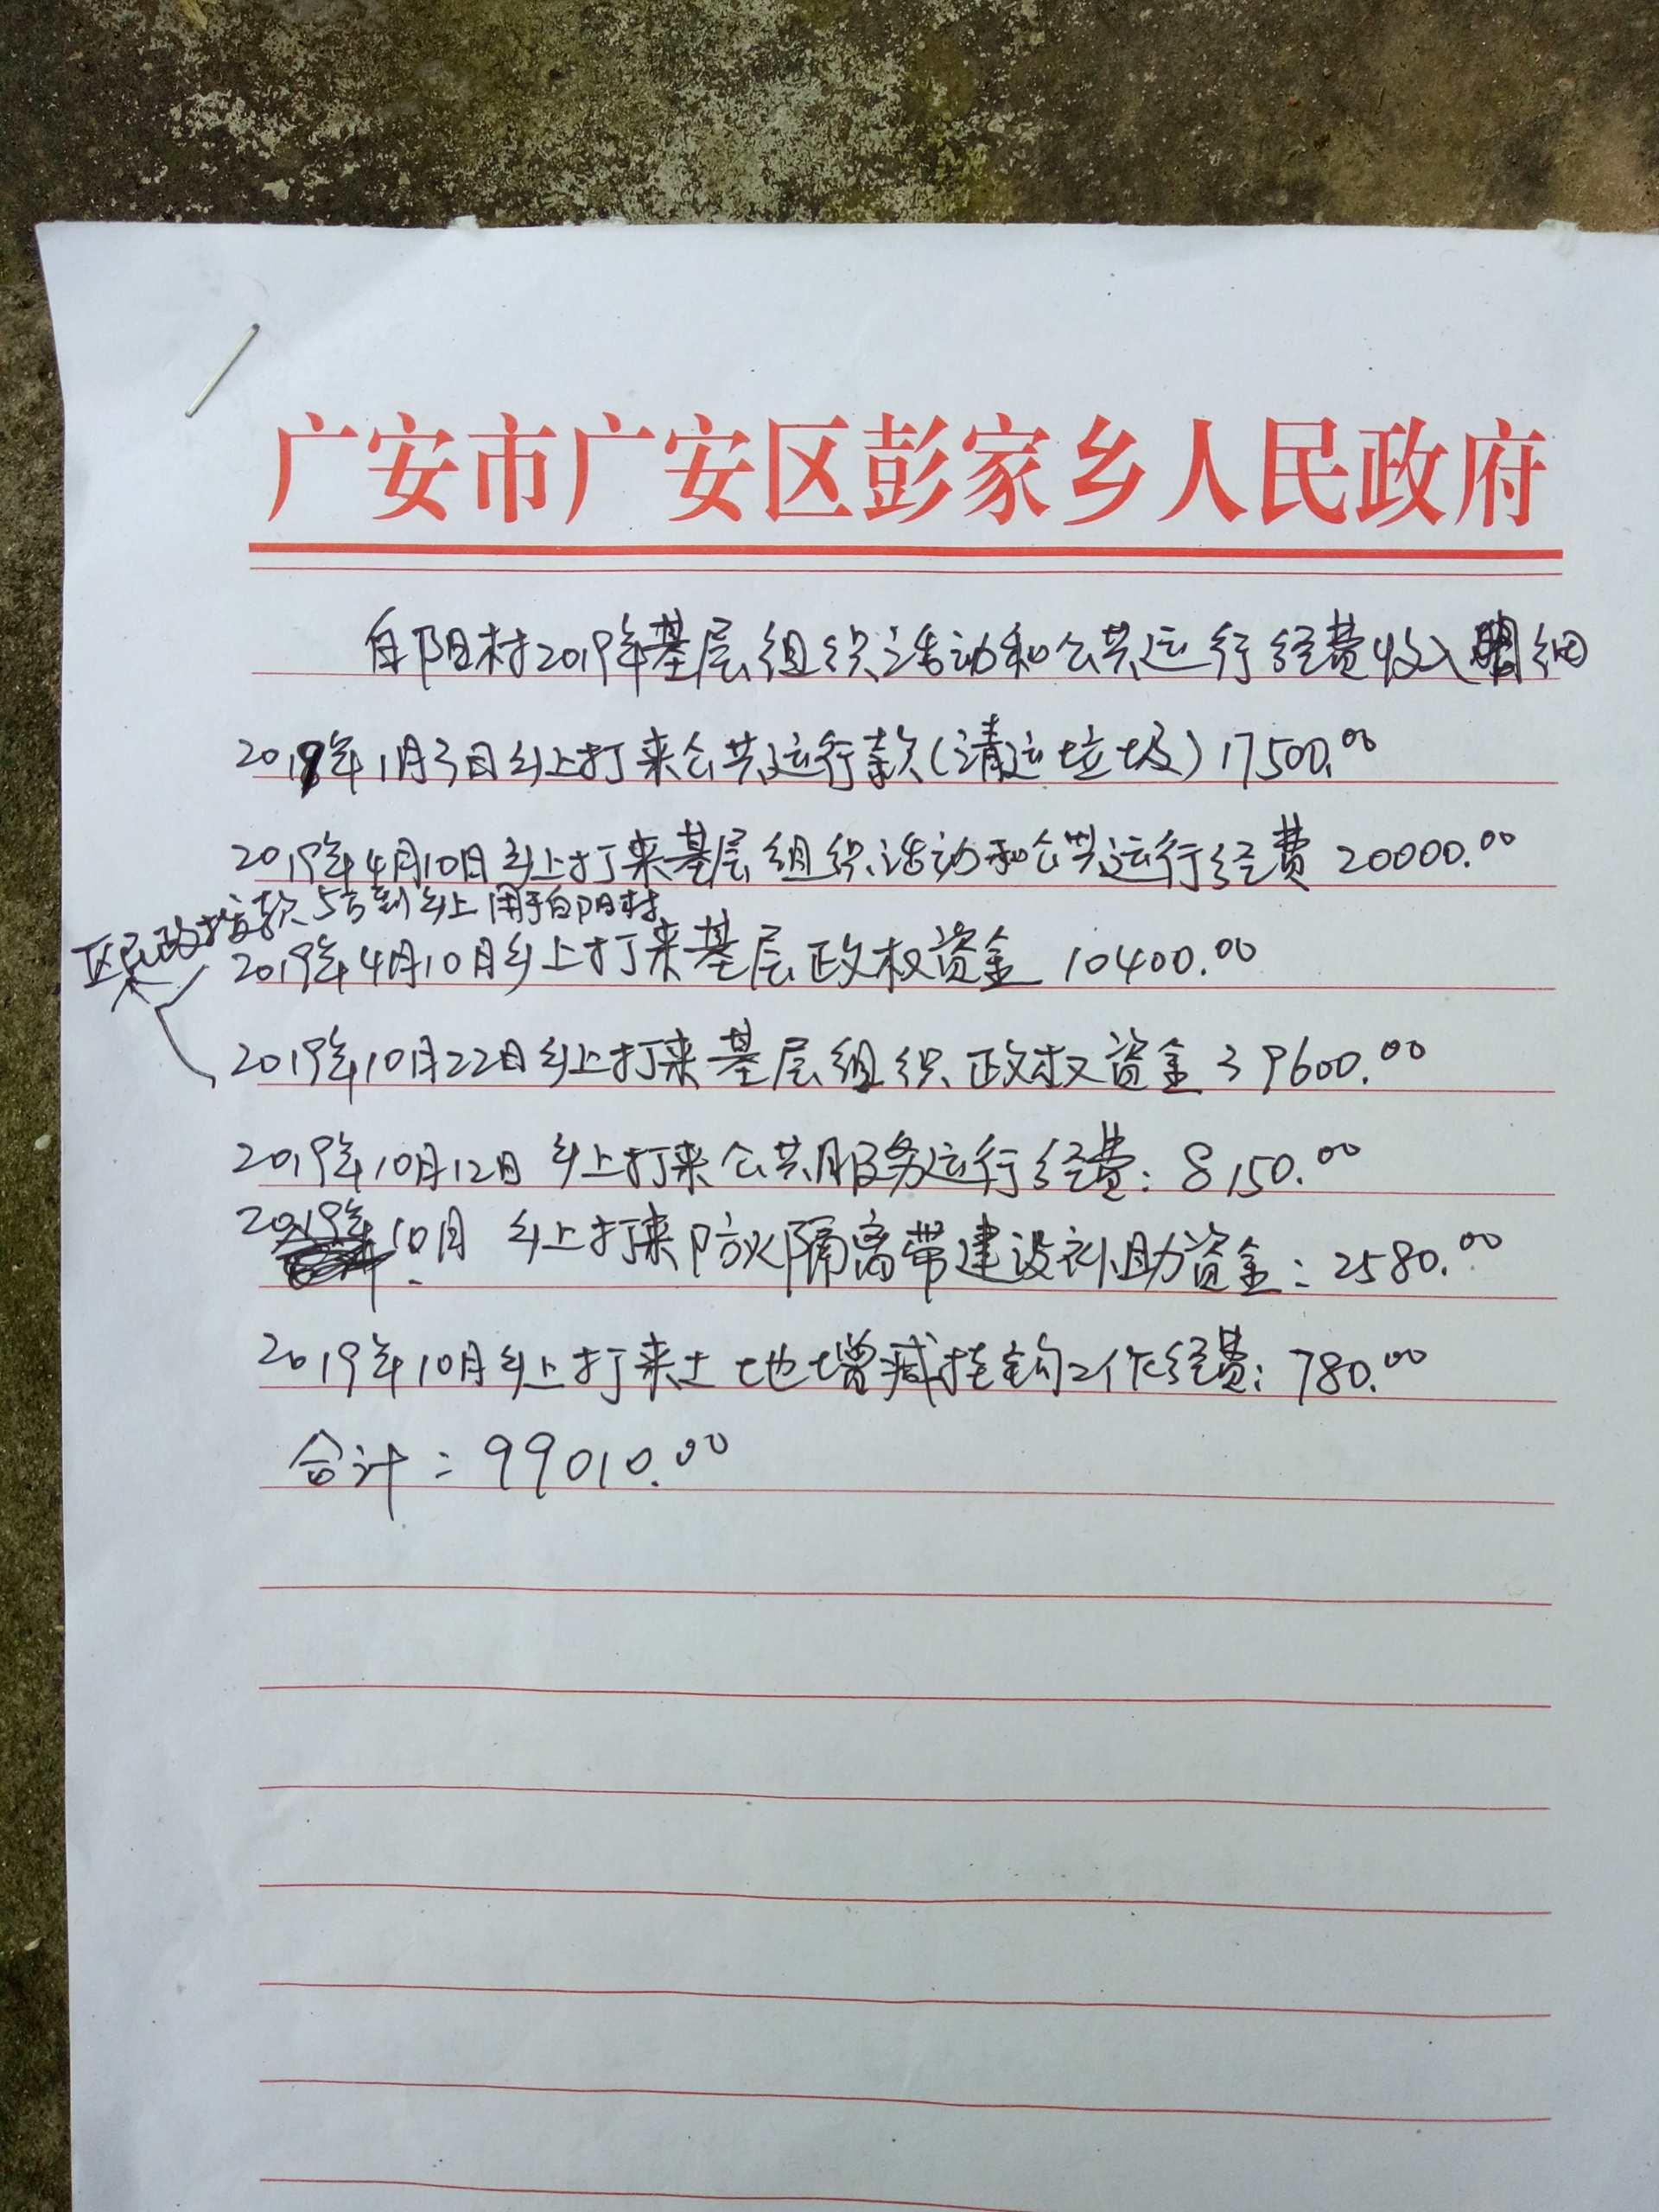 广安市广安区彭家乡人民政府
白阳村2019年基层组织活动和公共运行经费收入明细
2019年1月3日乡上打来公共运行款(清运垃圾)17500.00
2019年4月10日乡上打来基层组织活动和公共运行经费20000.00
区民政拨款5万到乡上用于白阳村
2019年4月10日乡上打来基层政权资金10400.00
2019年10月22日乡上打来基层组织政权资金39600.00
2019年10月12日乡上打来公共服务运行经费:8150.00
2019年10月乡上打来防火隔离带建设补助资金:2580.00
2019年10月乡上打来土地增减挂钩工作经费:780.00
合计:99010.00